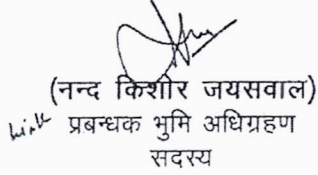 (नन्द किशोर जयसवाल)
प्रबन्धक भूमि अधिग्रहण
सदस्य